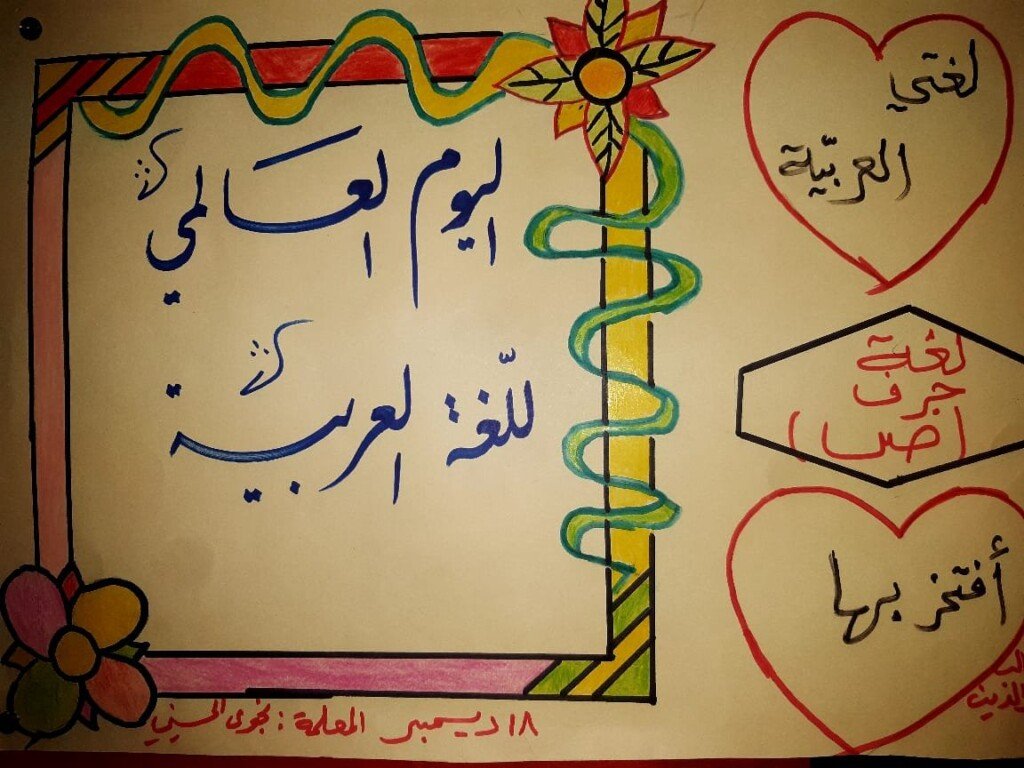 اليوم العالمي
للّغة العربية
لغتي
العربيّة
لغة
حرف
(ضاد)
أفتخر بها
١٨ ديسمبر المعلمة : نجوى الحسيني